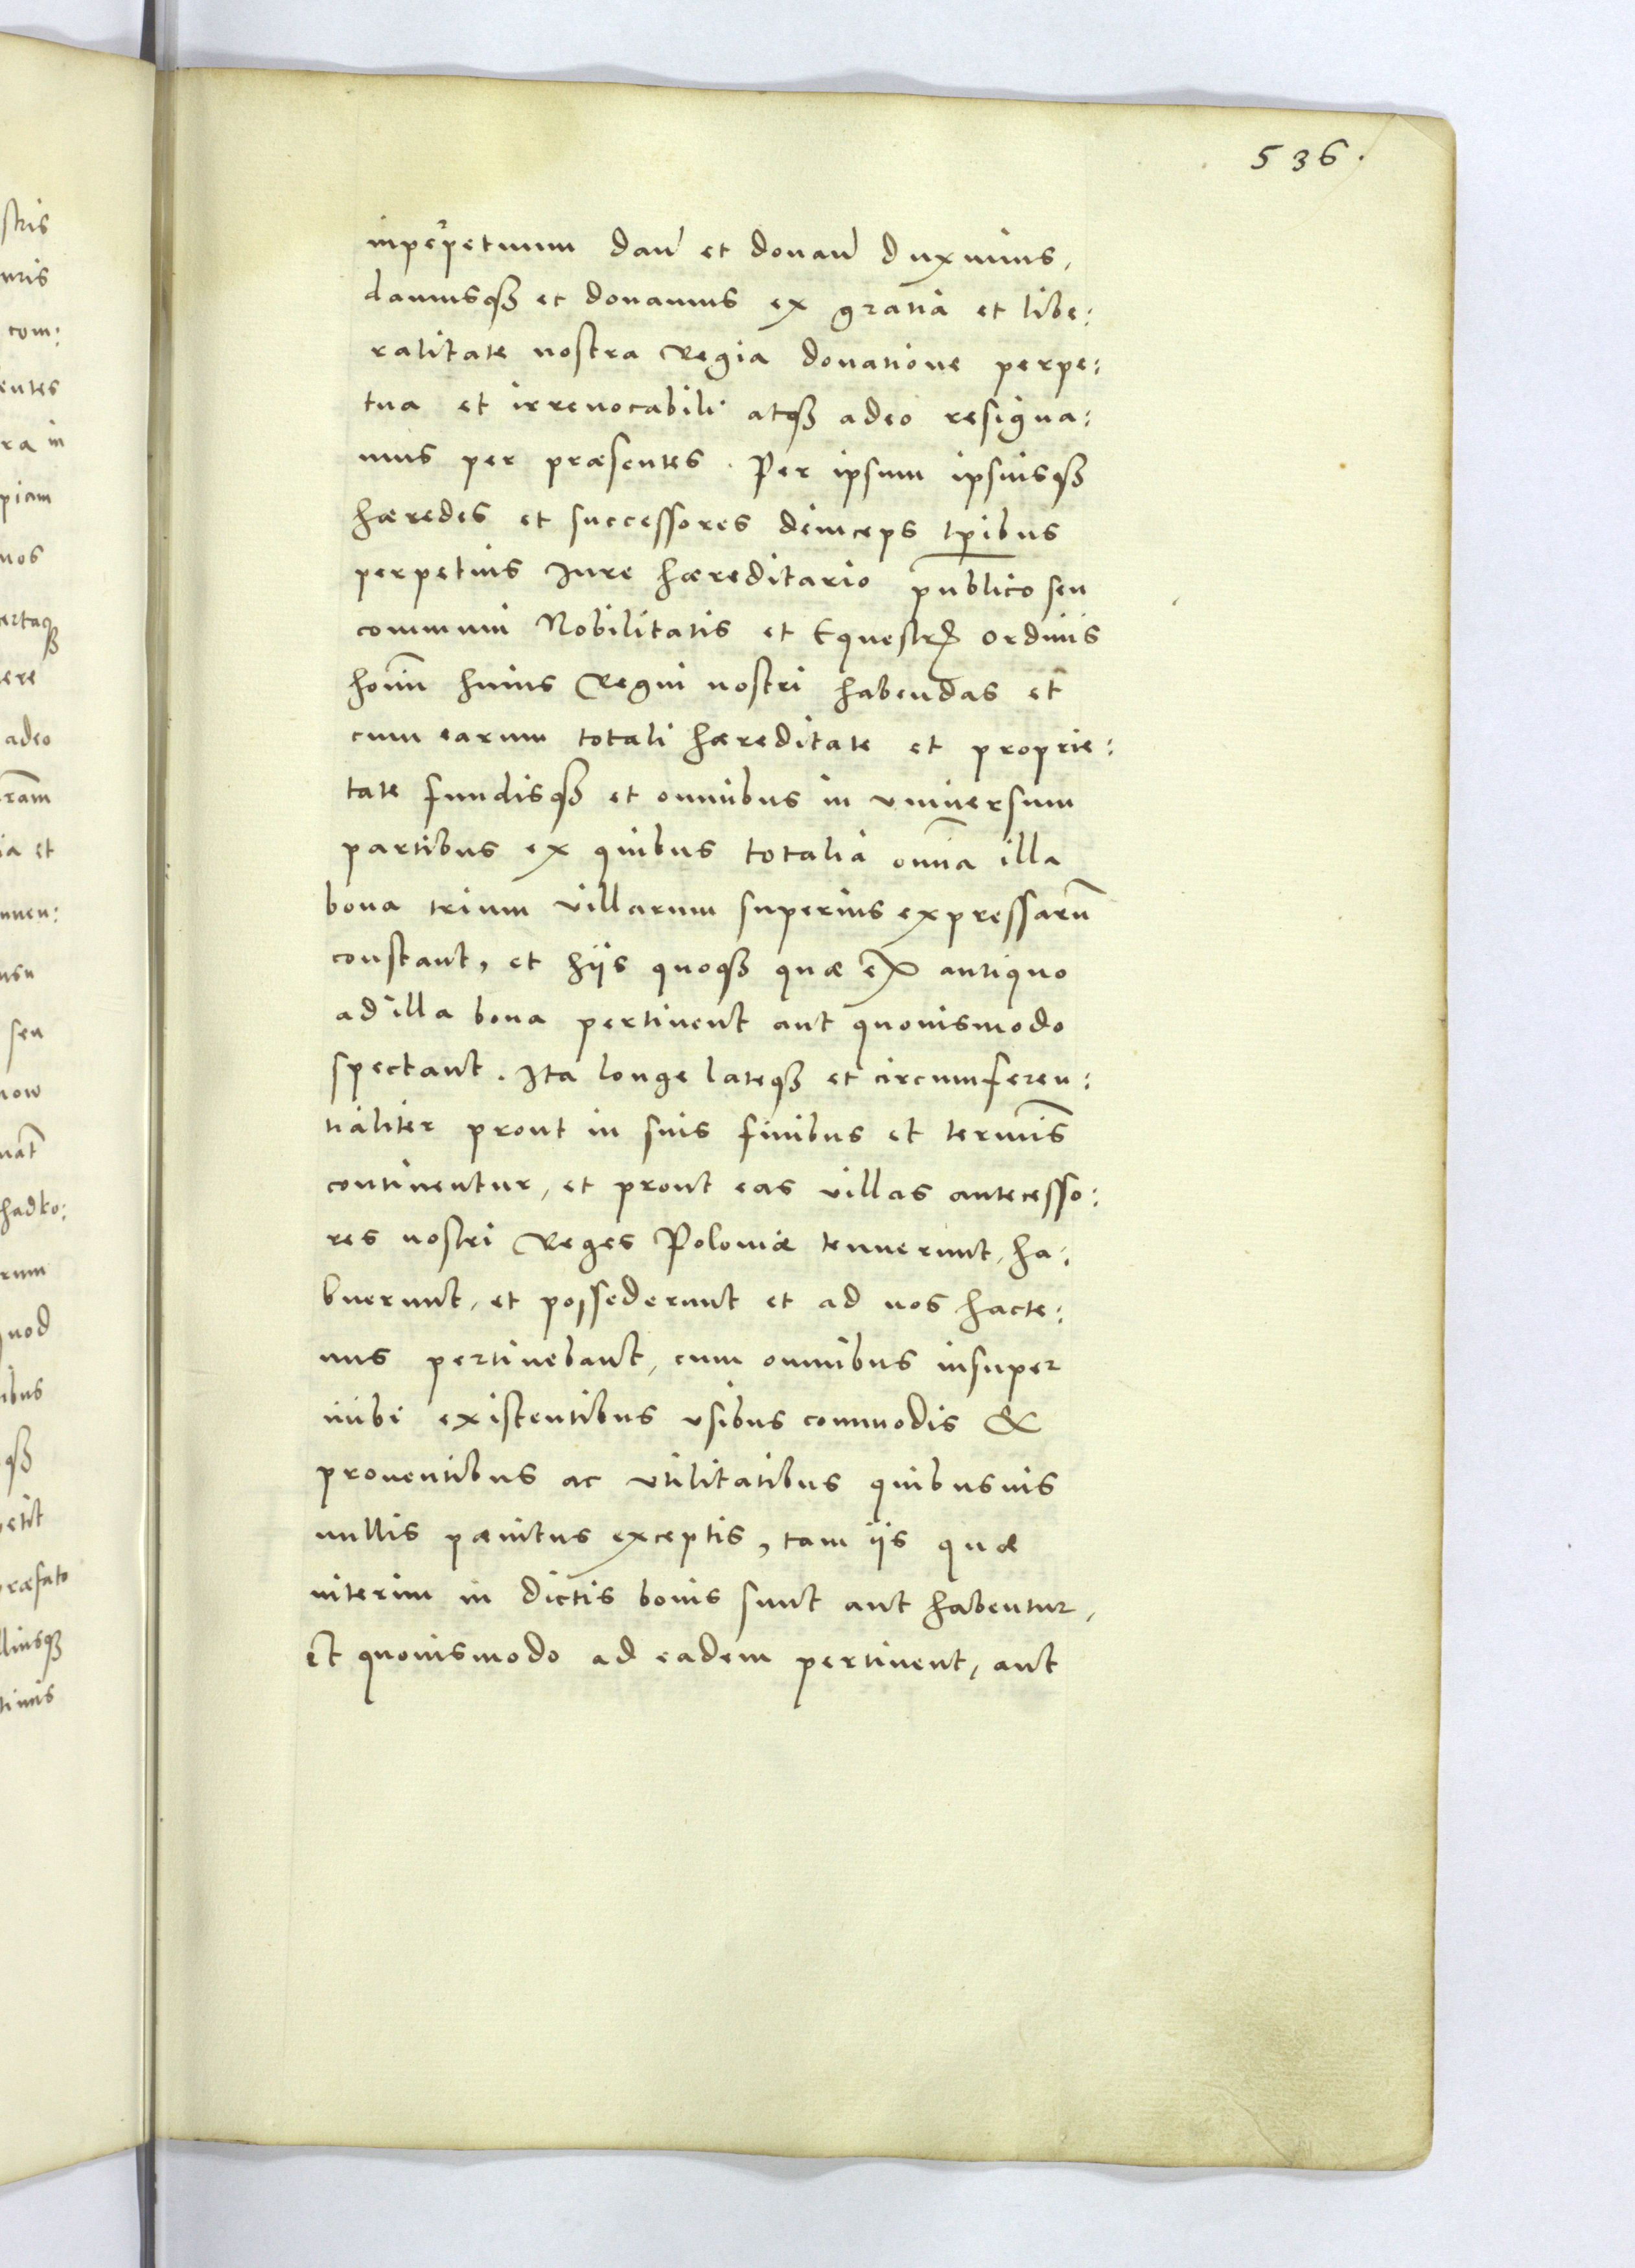 536.
inperpetuum dan̄ et donan̄ duximus,
damusqȝ et donamus ex gratia et libe:
ralitate nostra Regia donatione perpe:
tua et irreuocabili atqȝ adeo resigna:
mus per præsentes. Per ipsum ipsiusqȝ
hæredes et successores deinceps tp̄ibus
perpetuis Iure hæreditario publico seu
communi Nobilitatis et Equestrꝭ ordinis
hoīm huius Regni nostri habendas et
cum earum totali hæreditate et proprie:
tate fundisqȝ et omnibus in vniuersum
partibus ex quibus totalia om̄ia illa
bona trium villarum superius expressarū
constant, et hijs quoqȝ quæ ex antiquo
ad illa bona pertinent aut quouismodo
spectant. Ita longe lateqȝ et circumferen:
tialiter prout in suis finibus et termīs
continentur, et prout eas villas antecesso:
res nostri Reges Poloniæ tenuerunt, ha:
buerunt, et possederunt et ad nos hacte:
nus pertinebant, cum omnibus insuper
inibi existentibus vsibus commodis &
prouentibus ac vtilitatibus quibusuis
nullis pænitus exceptis, tam ijs quæ
interim in dictis bonis sunt aut habentur,
et quouismodo ad eadem pertinent, aut